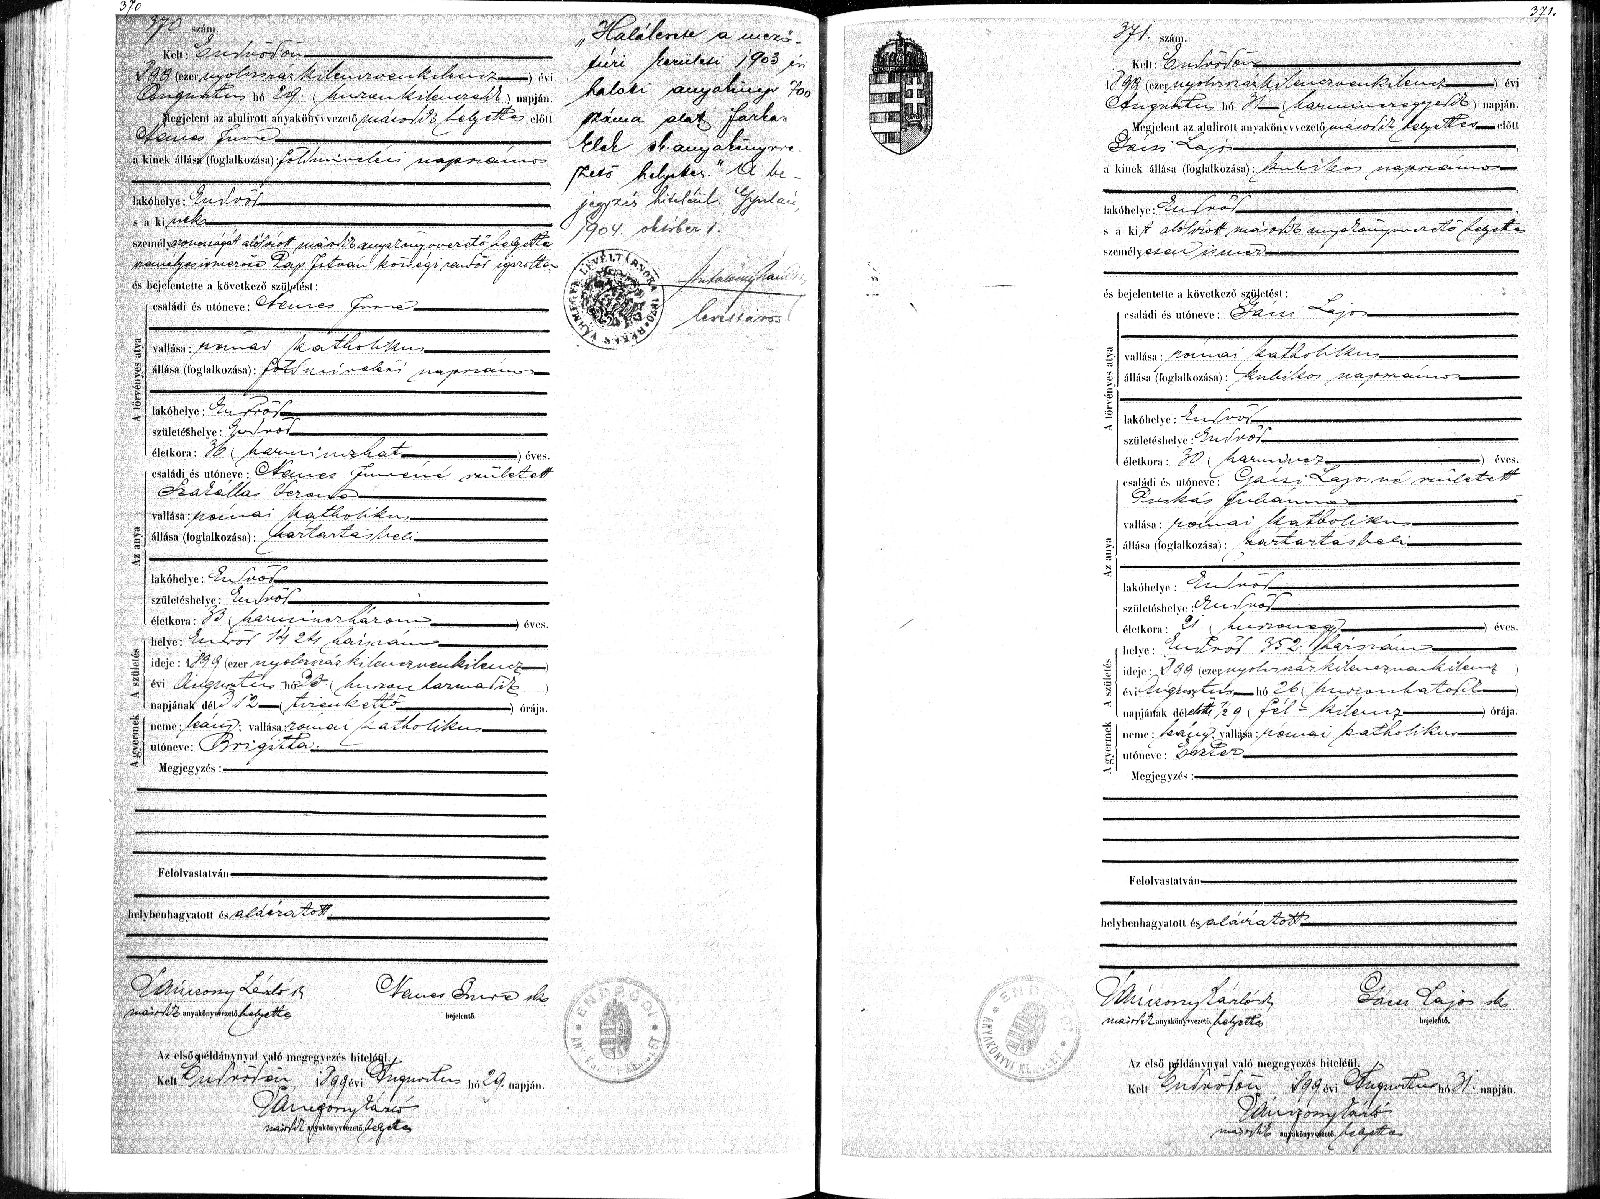 370
370 szám.
Kelt: Endrődön
1899 (ezernyolcszázkilenczvenkilencz) évi
Augusztus hó 29. (huszonkilenczedik) napján.
Megjelent az alulirott anyakönyvvezető második helyettes előtt
Nemes Imre
a kinek állása (foglalkozása): földmivelési napszámos
lakóhelye: Endrőd
s a kinek
személyazonosságát alólirott második anyakönyvvezető helyettes
személyes ismerőse Pap István községi rendőr igazolta
és bejelentette a következő születést:
A törvényes atya
családi és utóneve: Nemes Imre
vallása: római katholikus
állása (foglalkozása): földmivelési napszámos
lakóhelye: Endrőd
születéshelye: Endrőd
életkora: 36 (harminczhat) éves.
Az anya
családi és utóneve: Nemes Imréné született
Szakállas Verona
vallása: római katholikus
állása (foglalkozása): háztartásbeli
lakóhelye: Endrőd
születéshelye: Endrőd
életkora: 33 (harminczhárom) éves.
A születés
helye: Endrőd 1424 házszám
ideje: 1899 (ezernyolczszázkilenczvenkilencz)
évi Augusztus hó 23 (huszonharmadik)
napjának dél 12 (tizenkettő) órája.
A gyermek
neme: leány; vallása: római katholikus
utóneve: Brigitta.
Megjegyzés:
Felolvastatván
helybenhagyatott és aláiratott
Nemes Imre sk
második anyakönyvvezető helyettes
bejelentő.
Az első példánynyal való megegyezés hiteléül.
Kelt Endrődön, 1899 évi Augusztus hó 29. napján.
második anyakönyvvezető helyettes
„Halálesete a mező-
túri kerületi 1903 évi
halotti anyakönyv 700
száma alatt Farkas
Elek sk. anyakönyvve-
zető helyettes" A be-
jegyzés hiteléül. Gyulán,
1904. október 1.
levéltáros
371.
371. szám.
Kelt: Endrődön
1899 (ezernyolczszázkilenczvenkilencz) évi
Augusztus hó 31 (harminczegyedik) napján.
Megjelent az alulirott anyakönyvvezető második helyettes előtt
Gácsi Lajos
a kinek állása (foglalkozása): kubikos napszámos
lakóhelye: Endrőd
s a kit alólirott második anyakönyvvezető helyettes
személyesen ismer
és bejelentette a következő születést:
A törvényes atya
családi és utóneve: Gácsi Lajos
vallása: római katholikus
állása (foglalkozása): kubikos napszámos
lakóhelye: Endrőd
születéshelye: Endrőd
életkora: 30 (harmincz) éves.
Az anya
családi és utóneve: Gácsi Lajosné született
Puskás Julianna
vallása: római katholikus
állása (foglalkozása): háztartásbeli
lakóhelye: Endrőd
születéshelye: Endrőd
életkora: 21 (huszonegy) éves.
A születés
helye: Endrőd 352 házszám
ideje: 1899 (ezernyolczszázkilenczvenkilencz)
évi Augusztus hó 26 (huszonhatodik)
napjának délelőtti 1/2 9 (fél-kilencz) órája.
A gyermek
neme: leány; vallása: római katholikus
utóneve: Eszter
Megjegyzés:
Felolvastatván
helybenhagyatott és aláiratott
Gácsi Lajos sk
második anyakönyvvezető helyettes
bejelentő.
Az első példánynyal való megegyezés hiteléül.
Kelt Endrődön 1899 évi Augusztus hó 31. napján.
második anyakönyvvezető helyettes